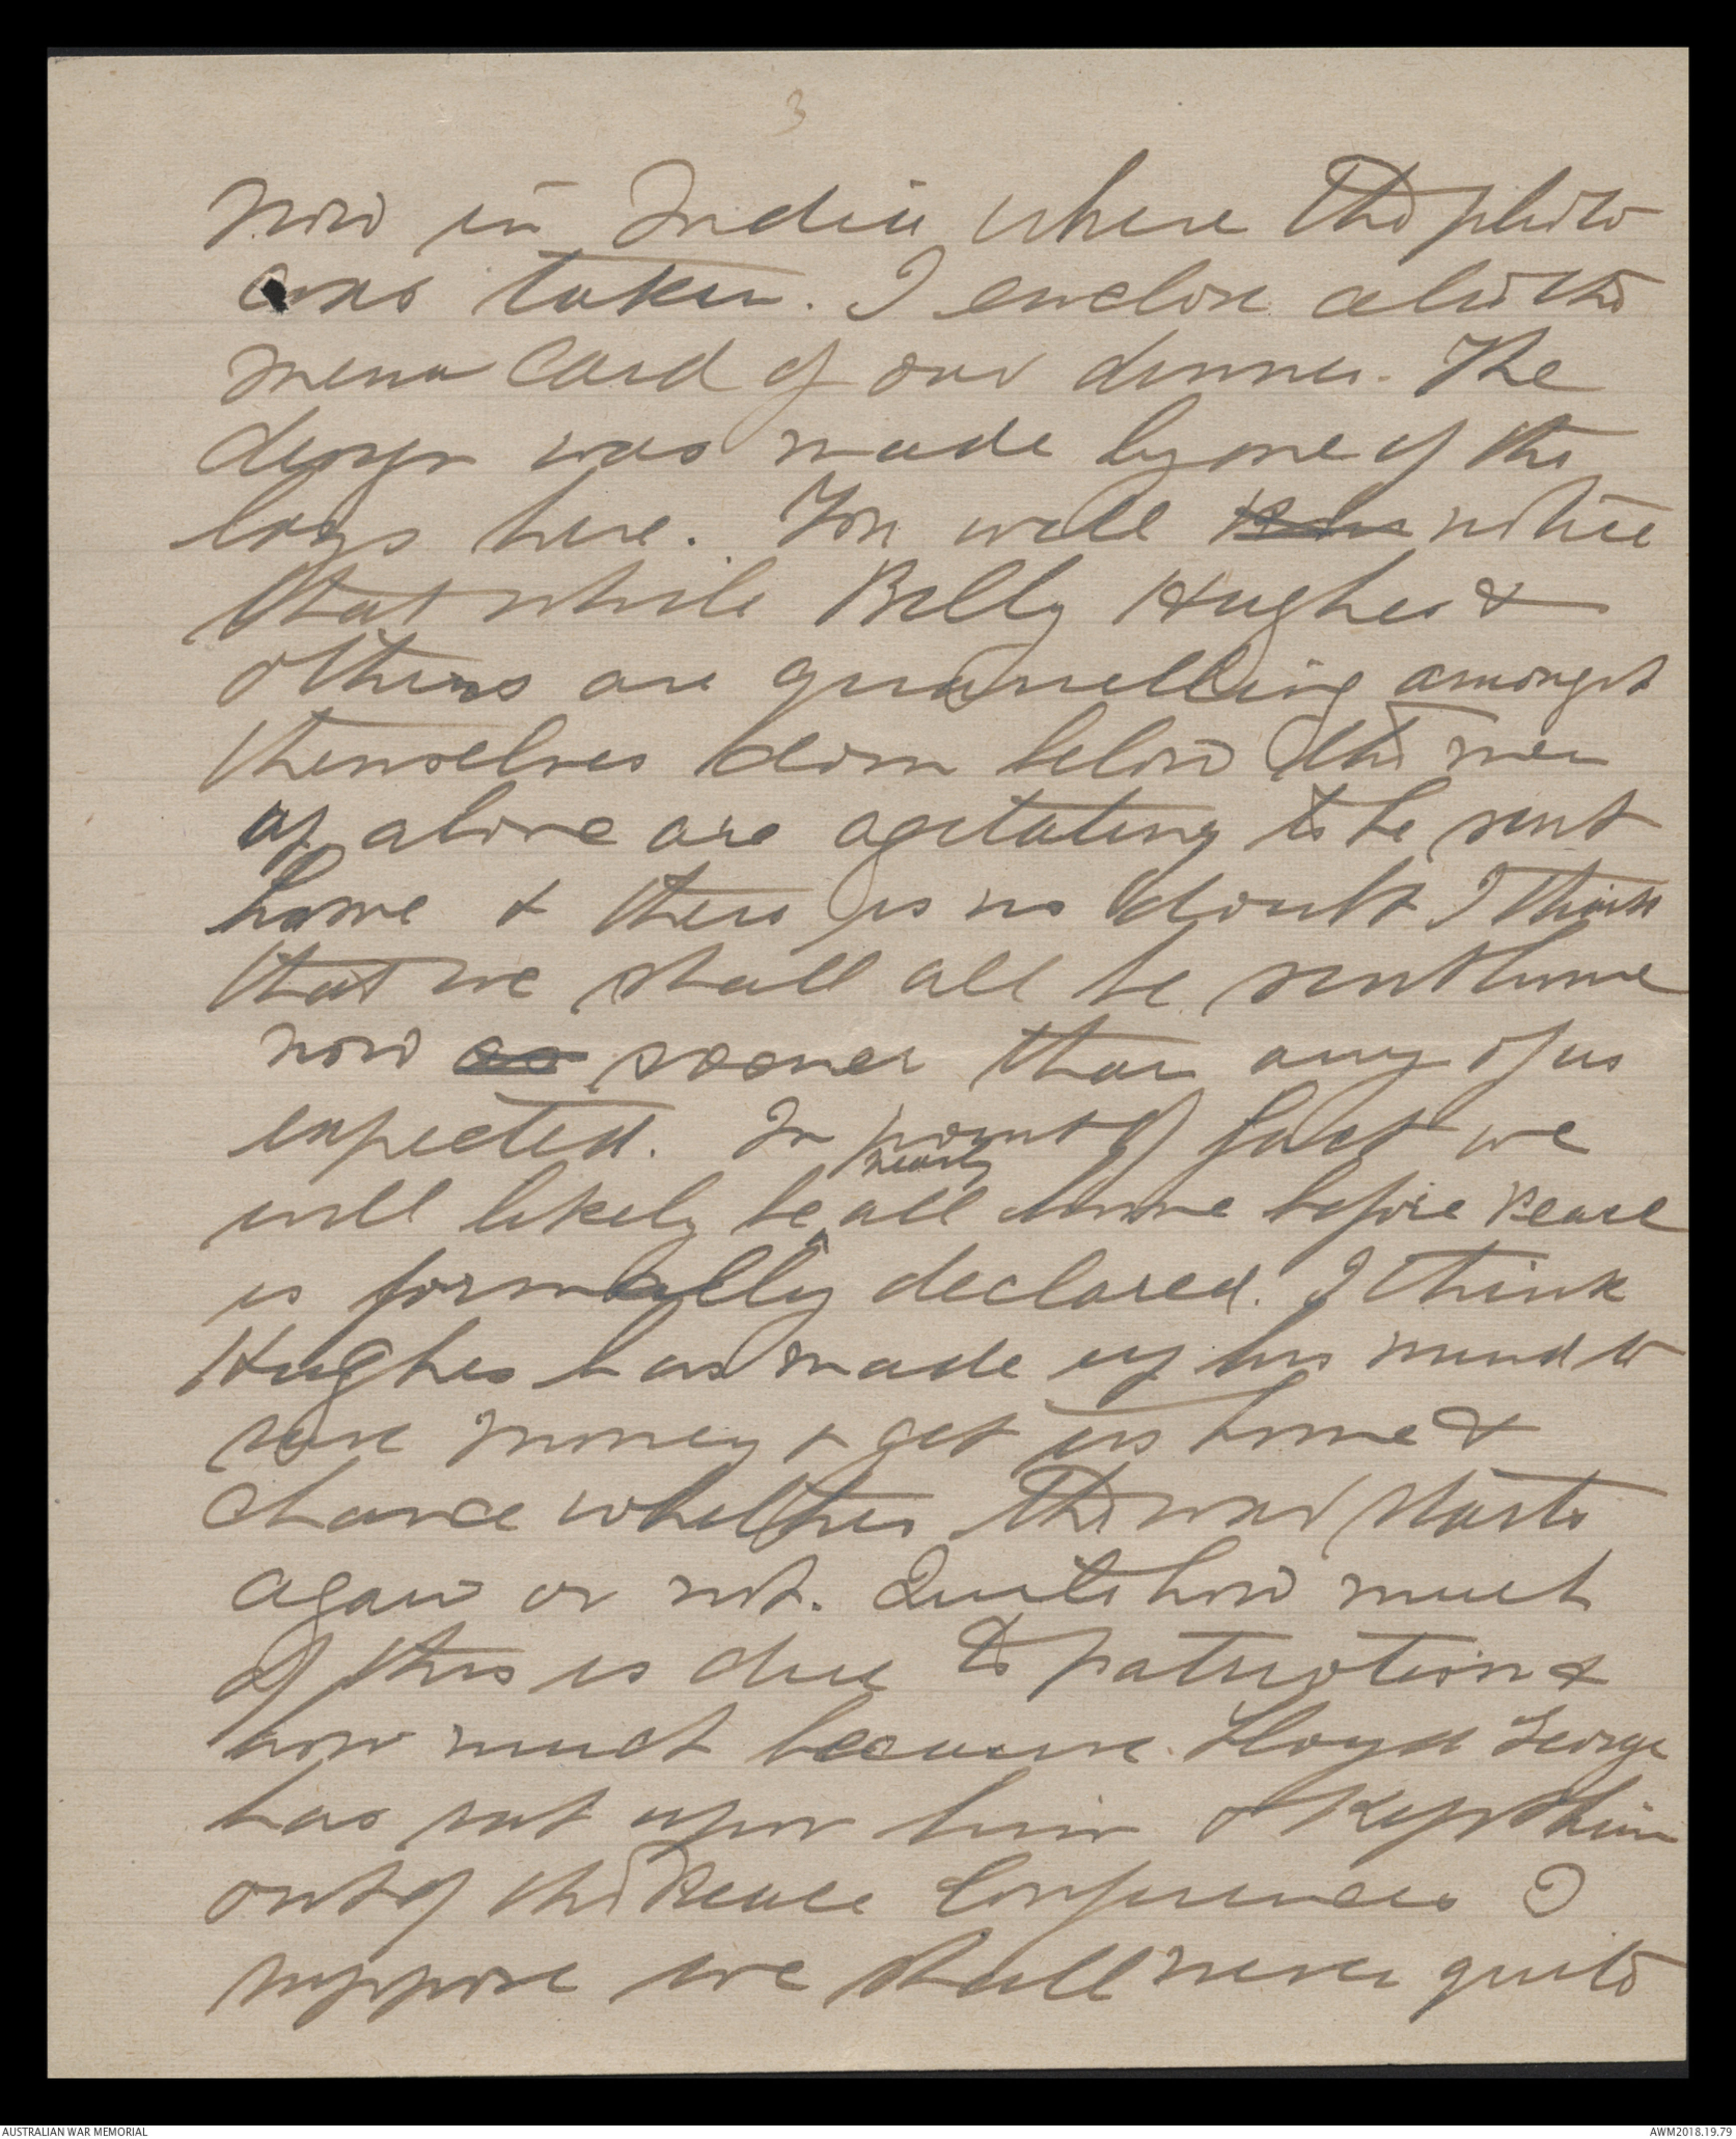 3
now in India where the photo
was taken. I enclose also the
menu card of our dinner. The
design was made by one of the
boys here. You will notice
that while Billy Hughes &
others are quarrelling amongst
themselves down below the men
up above are agitating to be sent
home & there is no doubt I think
that we shall all be sent home
now as sooner than any of us
expected. In point of fact we
nearly
will likely be all home before Peace
is formally declared. I think
Hughes has made up his mind to
save money & get us home &
chance whether the war starts
again or not. Quite how much
of this is due to patriotism &
how much because Lloyd George
has sat upon him & kept him
out of the Peace Conferences I
suppose we shall never quite
AUSTRALIAN WAR MEMORIAL
AWM2018.19.79